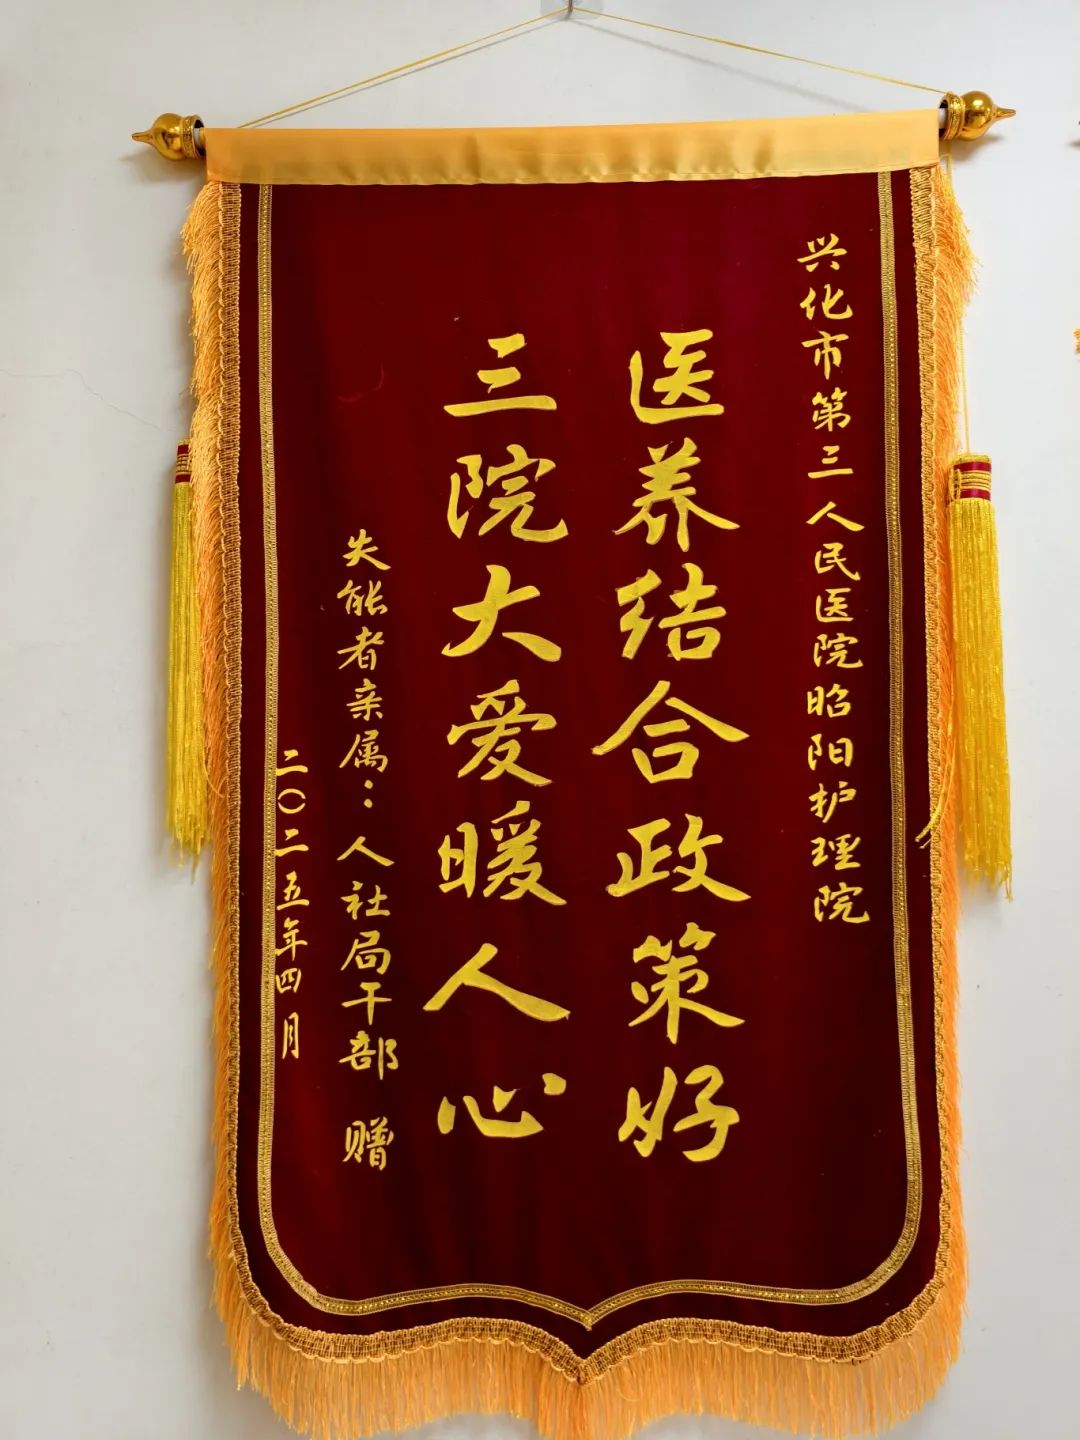 兴化市第三人民医院昭阳护理院
医养结合政策好
三院大爱暖人心
失能者亲属：人社局干部 赠
二〇二五年四月